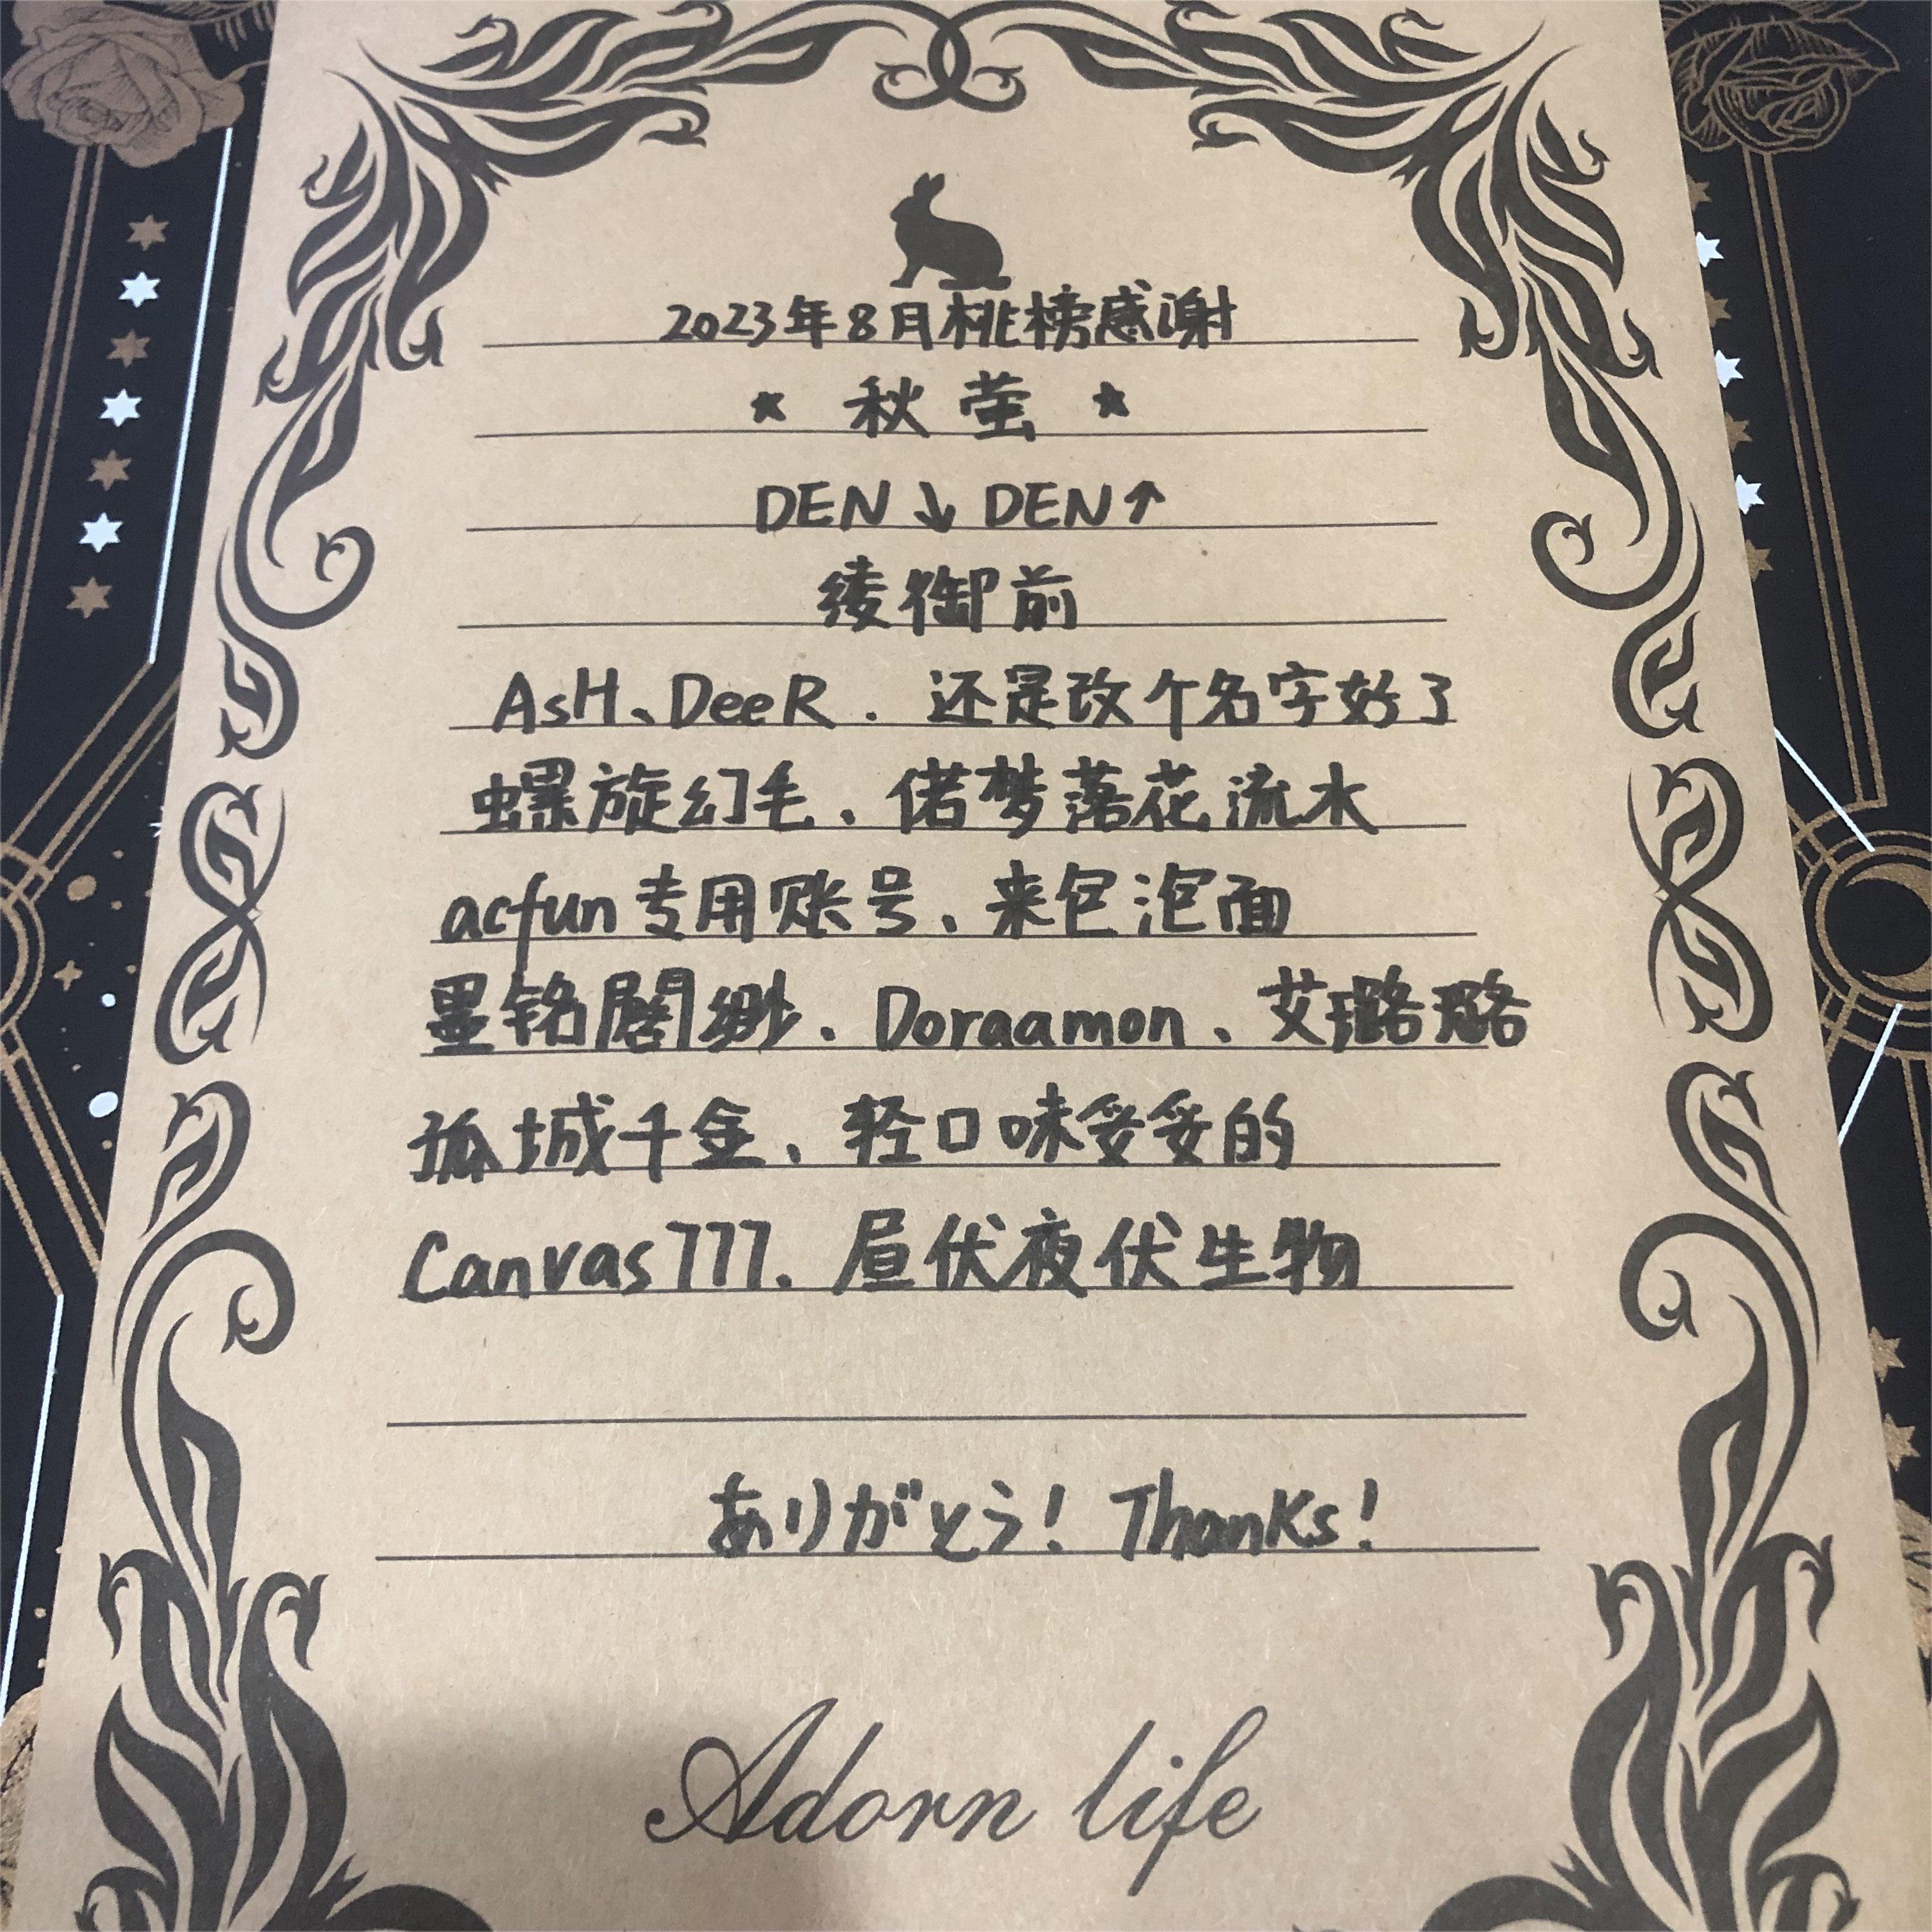 2023年8月桃榜感谢
★ 秋萤 ★
DEN↘DEN↑
绫御前
AsH、DeeR、还是改个名字好了
螺旋幻毛、偌梦落花流水
acfun专用账号、来包泡面
墨铭阁缈、Doraamon、艾璐璐
孤城千金、轻口味妥妥的
Canvas777、昼伏夜伏生物
ありがとう！Thanks！
Adorn life